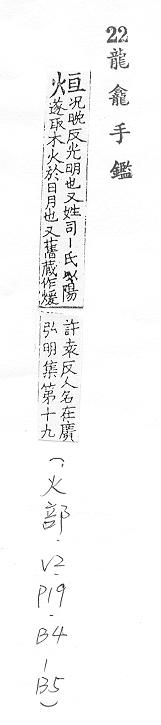 22龍龕手鑑
烜况晚反光明也又姓司―氏以陽
遂取木火於日月也又舊藏作煖
許𡊮反人名在廣
弘明集第十九
(火部.V2-P19-B4-B5)